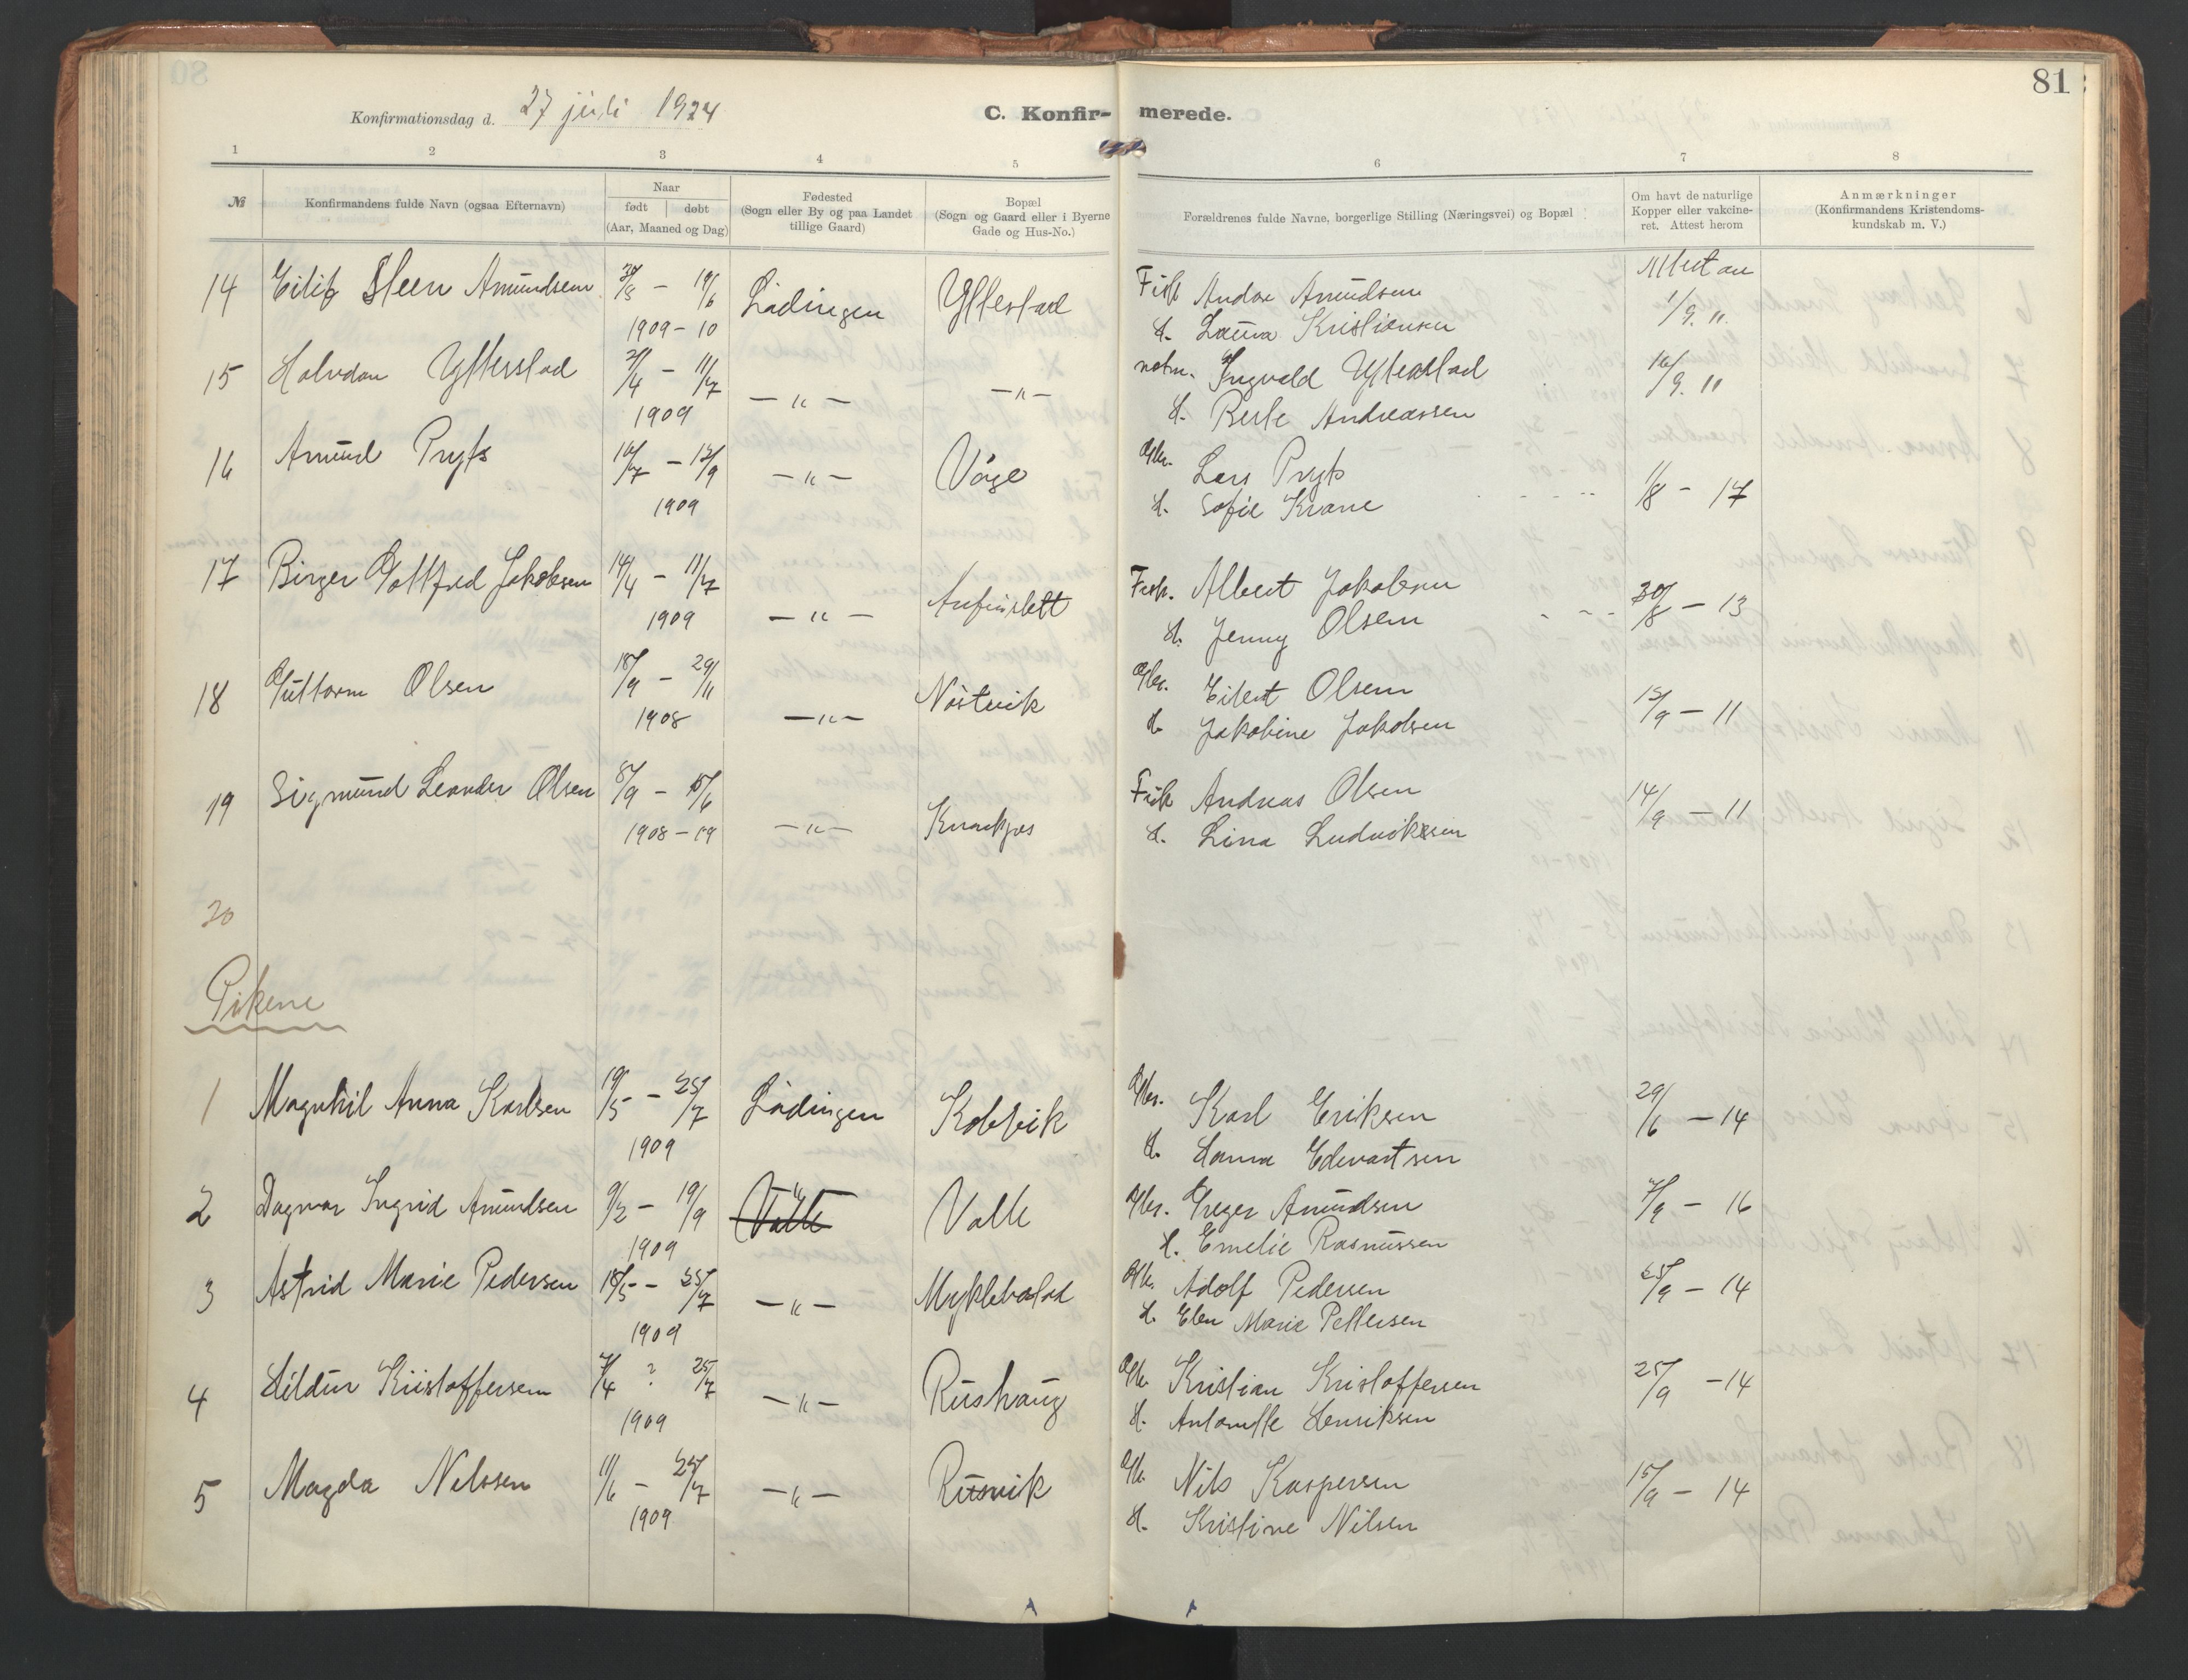 81
Konfirmationsdag d. 27 juli 1924
C. Konfir- merede.
1 2 3 4 5 6 7 8
№
Konfirmandens fulde Navn (ogsaa Efternavn)
Naar
født døbt
(Aar, Maaned og Dag)
Fødested
(Sogn eller By og paa Landet
tillige Gaard)
Bopæl
(Sogn og Gaard eller i Byerne
Gade og Hus-No.)
Forældrenes fulde Navne, borgerlige Stilling (Næringsvei) og Bopæl
Om havt de naturlige
Kopper eller vakcine-
ret. Attest herom
Anmærkninger
(Konfirmandens Kristendoms-
kundskab m. V.)
14 Eilif Steen Amundsen /8 – 19/6 Lødingen Ytterstad Fisk Amundsen 1/9. 11.
1909–10 H. Laura Kristiansen
15 Halvdan Ytterstad 2/4 – 11/7 –"– –"– Ingvald Ytterstad 16/9. 11
1909 H. Berte Andreassen
16 Amund Pryts 10/7 – 12/9 –"– Våge Gbr. Lars Pryts
1909 H. Sofie Krane 1/8 – 17
17 Birger Gottfred Jakobsen 14/4 – 11/7 –"– Anfinslett Fisk. Albert Jakobsen 30/8 – 13
1909 H. Jenny Olsen
18 Guttorm Olsen 18/9 – 29/11 –"– Nøstvik Gbr. Eilert Olsen 12/9 – 11
1908 H. Jakobine Jakobsen
19 Sigmund Leander Olsen 8/9 – 15/6 –"– Fisk Andreas Olsen 14/9 – 11
1908–09 H. Lina Ludviksen
20
Pikene
1 Magnhil Anna Karlsen 19/5 – 25/7 Lødingen Kobbvik Gbr. Karl Eriksen 29/6 – 14
1909 H. Hanna Edvartsen
2 Dagmar Ingrid Amundsen 9/2 – 19/9 Valle Valle Gbr. Greger Amundsen 7/9 – 16
1909 H. Emelie Rasmussen
3 Astrid Marie Pedersen 18/5 – 25/7 –"– Myklebostad Gbr. Adolf Pedersen 25/9 – 14
1909 H. Elen Marie Pettersen
4 Hildur Kristoffersen 7/4 ? 25/7 –"– Rushaug Gbr. Kristian Kristoffersen 25/9 – 14
1909 H. Antonette Henriksen
5 Magda Nilssen 11/6 – 25/7 –"– Rusvik Gbr. Nils Kaspersen 15/9 – 14
1909 H. Kristine Nilsen